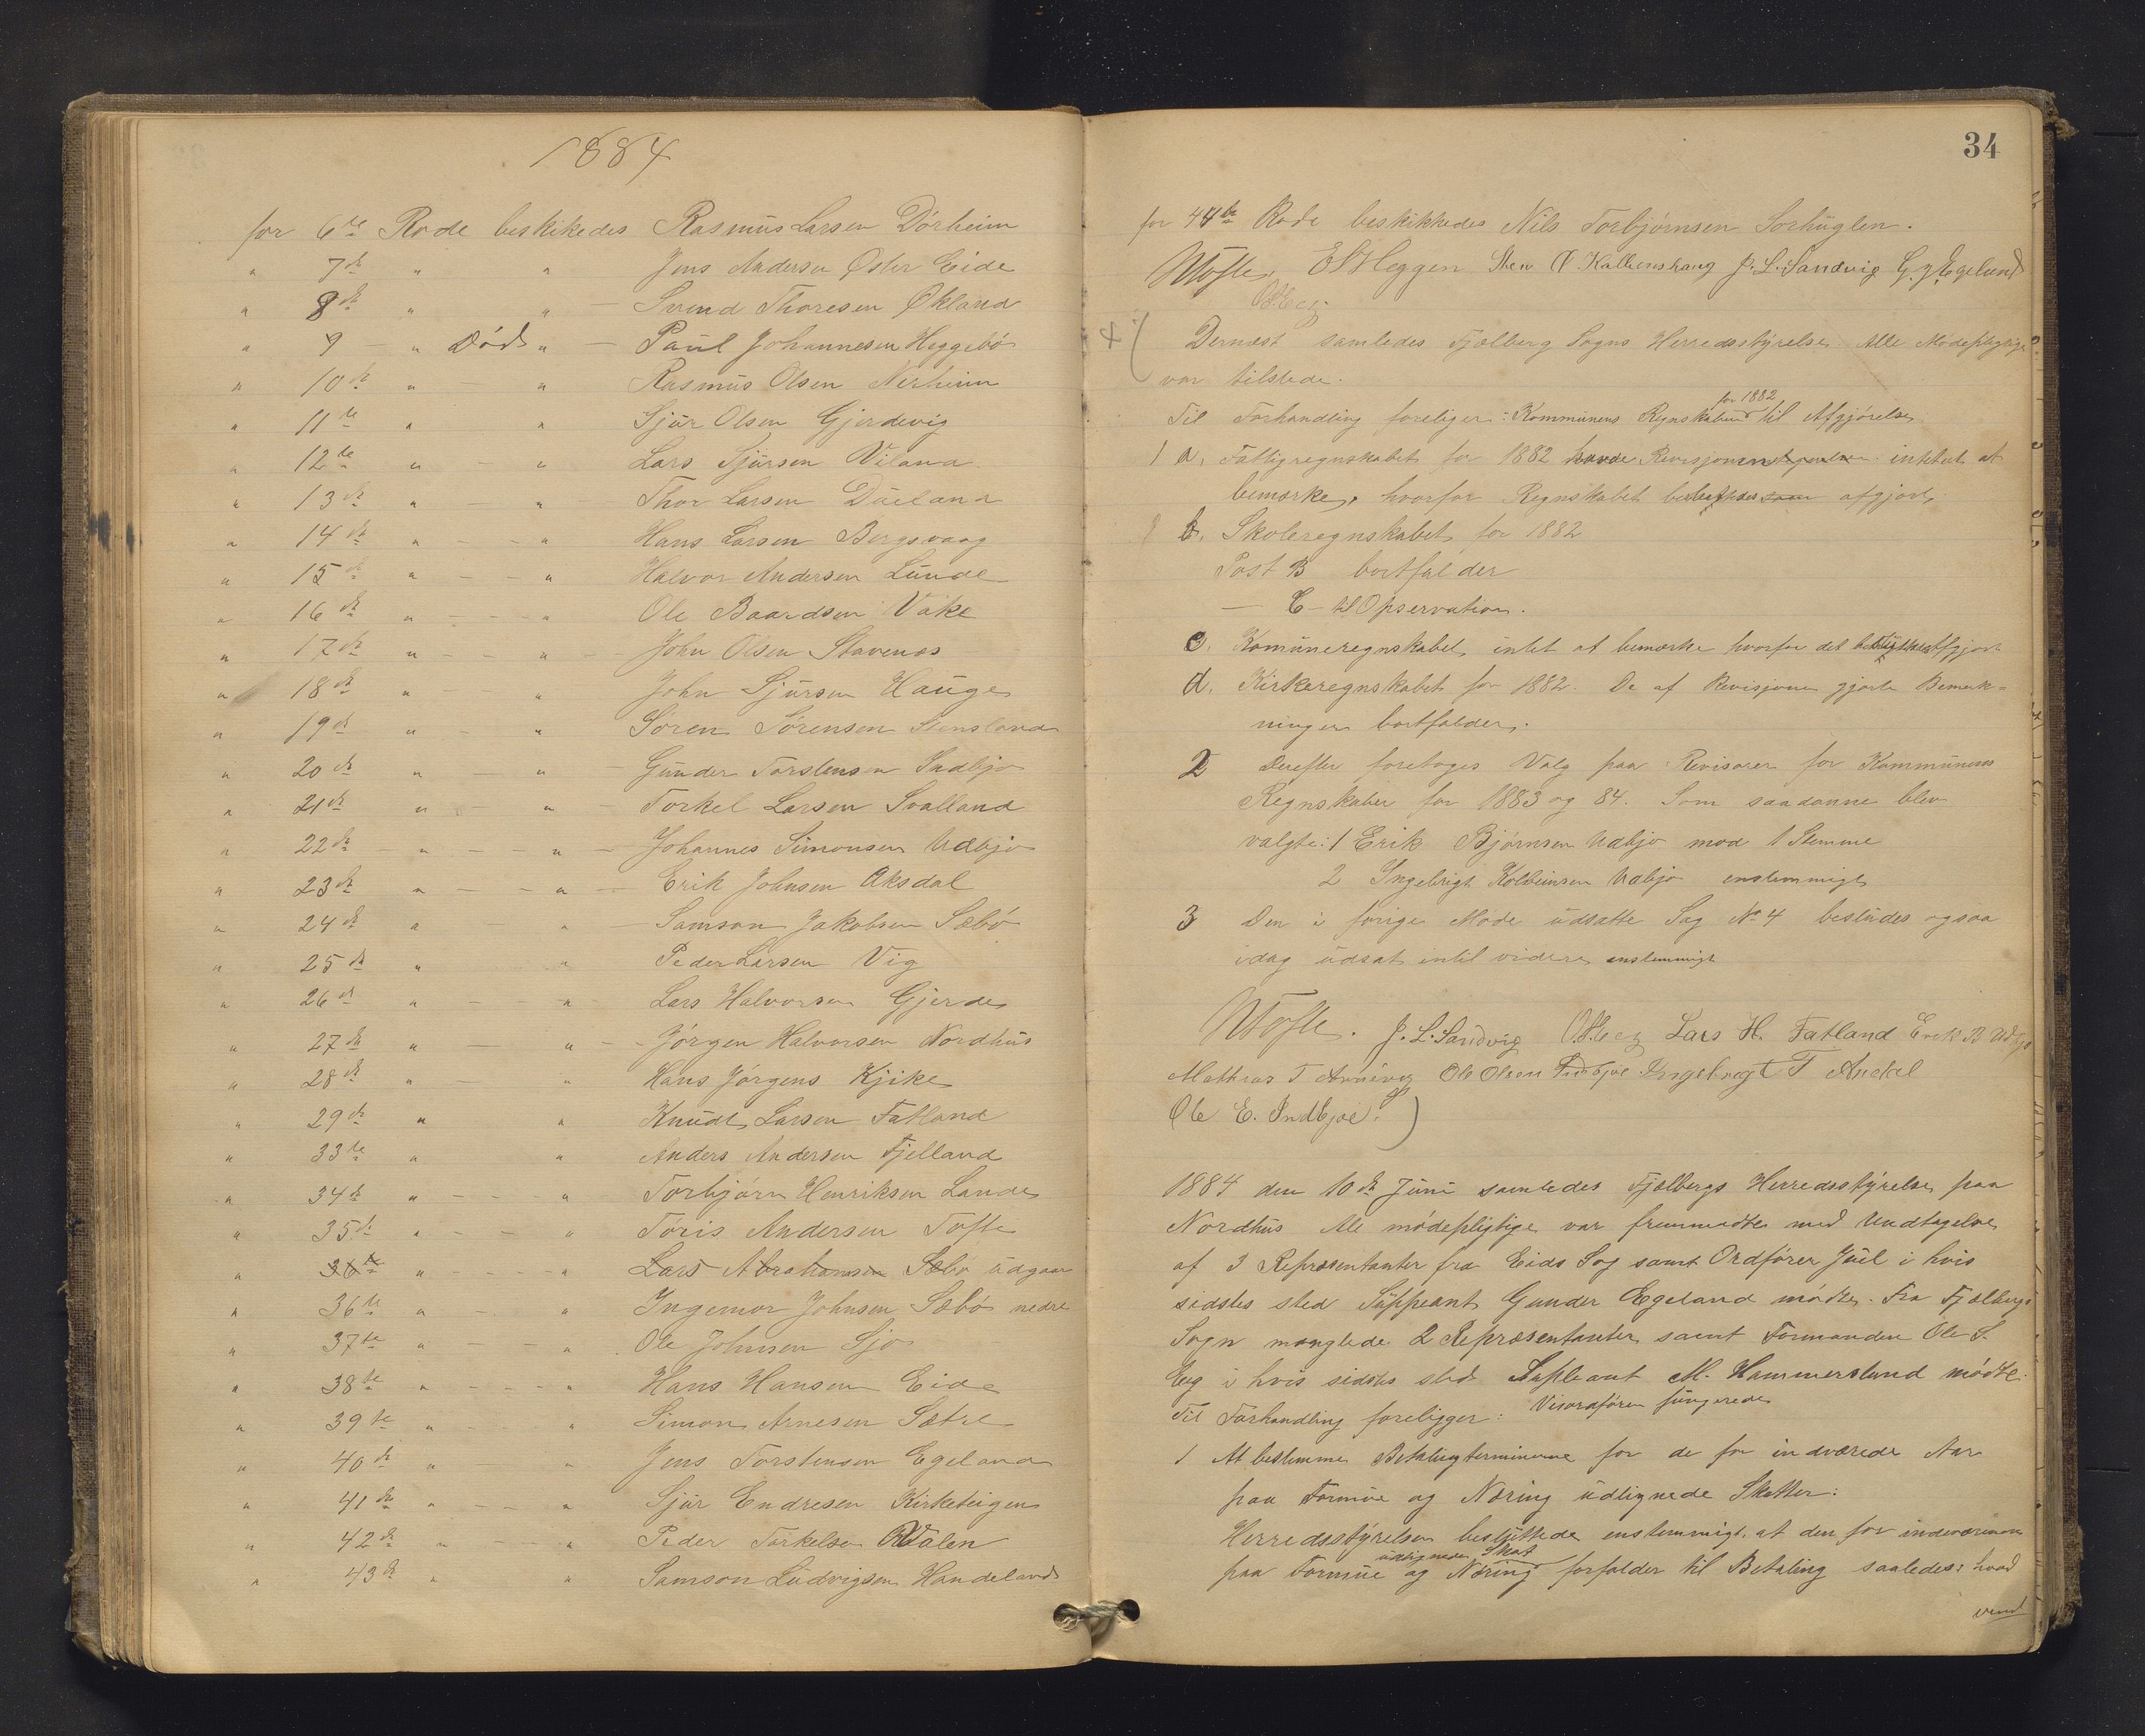 1884
for 6te Rode beskikedes Rasmus Larsen Dörheim
" 7de " " Jens Andersen Öster Eide
" 8de " " Svend Thoresen Ökland
" 9 - " Död " Paul Johannesen Heggebö
" 10de " - " Rasmus Olsen Nerheim
" 11te " " Sjur Olsen Gjerdevig
" 12te " - " Lars Sjursen Viland
" 13de " - " Thor Larsen Dueland
" 14de " - - " Hans Larsen Bergsvaag
" 15de " - - " Halvor Andersen Lunde
" 16de " - - " Ole Baardsen Vake
" 17de " - - " John Olsen Stavenes
" 18de " - - " John Sjursen Hauge
" 19de " - " Sören Sörensen Stensland
" 20de " - " Gunder Torstensen Indbjo
" 21de " - " Torkel Larsen Svalland
" 22de - " - - " Johannes Simonsen Udbjo
" 23de " - - " Erik Johnsen Aksdal
" 24de " - " Samson Jakobsen Sæbö
" 25de " " Peder Larsen Vig
" 26de " - - " Lars Halvorsen Gjerde
" 27de " - " Jörgen Halvorsen Nordhus
" 28de " - " Hans Jörgens Kjike
" 29de " " Knudt Larsen Fatland
" 33te " " Anders Andersen Fjelland
" 34de " - - " Torbjörn Henriksen Lande
" 35te " - - " Töris Andersen Tofte
" 36te " - - " Lars Abrahamsen Sæbö udgaar
" 36te " - " Ingemor Johnsen Sæbö nedre
" 37te " - - " Ole Johnsen Sjo
" 38te " - - - " Hans Hansen Eide
" 39te " - - " Simon Arnesen Sætre
" 40de " - " Jens Torstensen Egeland
" 41de " - - " Sjur Endresen Kirketeigen
" 42de " - - " Peder Torkelsen Valen
" 43de " " Samson Ludvigsen Handeland
34
for 44de Rode beskikkedes Nils Torbjörnsen Sorhuglen.
NTofte. E S Heggen Sten J. L. Sandvig G. J. Egeland
OSEeg.
Dernæst samledes Fjelberg Sogns Herredsstyrelse. Alle Mödepligtige
var tilstede.
Til Forhandling foreliger: Kommunens Regnskaber for 1882 til Afgjörelse.
1 a. Fattigregnskabet for 1882 havde Revisjonen intet at
bemærke, hvorfor Regnskabet afgjort,
b. Skoleregnskabet for 1882
Post B bortfalder
— C - til Opservation.
c. Komuneregnskabet intet at bemærke hvorfor det afgjort
d. Kirkeregnskabet for 1882. De af Revisjonen gjorte Bemærk-
ninger bortfalder.
2 Derefter foretoges Valg paa Revisorer for Kommunens
Regnskaber for 1883 og 84. Som saadanne blev
valgte: 1 Erik Björnsen Udbjo mod 1 Stemme
2 Ingebrigt Kolbeinsen Udbjo enstemmigt
3 Den i forige Mode udsatte Sag No 4 besludes ogsaa
idag udsat intil videre enstemmigt
NTofte. J. L. Sandvig OSEeg Lars H. Fatland Erik B Udbjo
Mathias T Ole Olsen Indbjoe Ingebregt T
Ole E. Indbjoe.
1884 den 10de Juni samledes Fjelbergs Herredsstyrelse paa
Nordhus Ale mödepligtige var fremmødte med Undtagelse
af 3 Repræsentanter fra Eids Sog samt Ordförer Juel i hvis
sidstes sted Suppeant Gunder Egeland mödte. Fra Fjelbergs
Sogn manglede 2 Repræsentanter samt Formanden Ole S.
Eeg i hvis sidstes sted Supleant M. Hammersland mödte.
Viseordförer fungerede
Til Forhandling foreligger:
1 At bestemme Betalingterminerne for de for indværede Aar
paa Formue og Næring udlignede Skatter:
Herredsstyrelsen besluttede enstemmigt at den for indeværende
paa Formue og Næring udlignede Skat forfalder til Betaling saaledes: hvad
vend